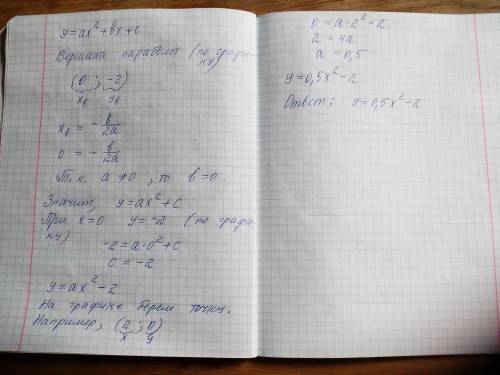 y=ax²+bx+c
Вершина параболы (по графи-
ку)
(0 ; -2)
xв yв
xв = - в/2a
0 = - в/2a
Т.к. a ≠0 , то в =0
Значит, y=ax²+c
При x=0 y=-2 (по графи-
ку)
-2=a·0²+c
c = -2
y=ax²-2
На графике берем точку.
Например, (2 ; 0)
x y
0=a·2²-2
2=4a
a=0,5
y=0,5x²-2
Ответ: y=0,5x²-2